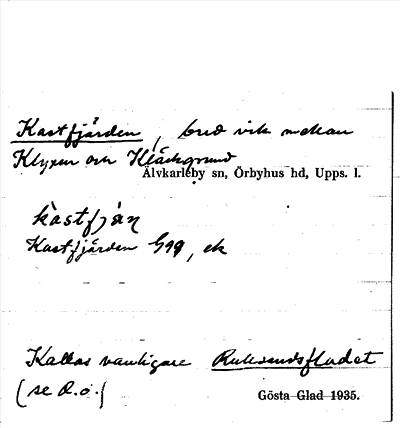 Kastfjärden, bred vik mellan
Klyxen och Kläckgrund
Älvkarleby sn, Örbyhus hd, Upps. l.
kàstfjàṇ
Kastfjärden G99, ek
Kallas vanligare Ruksandsfladet
(se d.o.)
Gösta Glad 1935.